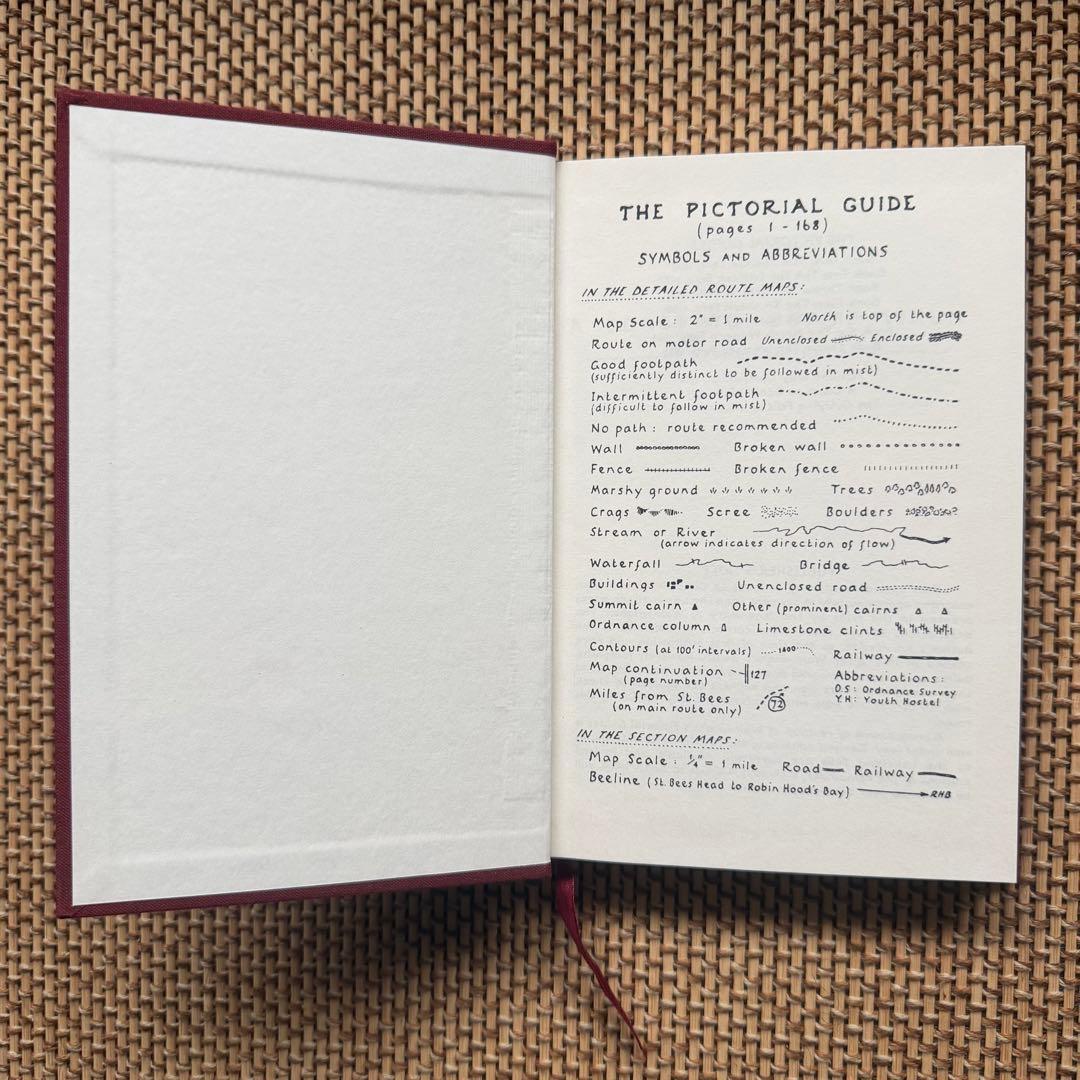 THE PICTORIAL GUIDE
(pages 1 - 168)
SYMBOLS AND ABBREVIATIONS
IN THE DETAILED ROUTE MAPS:
Map Scale : 2" = 1 mile North is top of the page
Route on motor road Unenclosed Enclosed
Good footpath
(sufficiently distinct to be followed in mist)
Intermittent footpath
(difficult to follow in mist)
No path : route recommended
Wall Broken wall
Fence Broken fence
Marshy ground Trees
Crags Scree Boulders
Stream or River
(arrow indicates direction of flow)
Waterfall Bridge
Buildings Unenclosed road
Summit cairn Other (prominent) cairns
Ordnance column Limestone clints
Contours (at 100' intervals) 1400 Railway
Map continuation 127
(page number)
Abbreviations :
O.S : Ordnance Survey
Y.H : Youth Hostel
Miles from St. Bees 72
(on main route only)
IN THE SECTION MAPS:
Map Scale : ¼" = 1 mile Road Railway
Beeline (St. Bees Head to Robin Hood's Bay) RHB